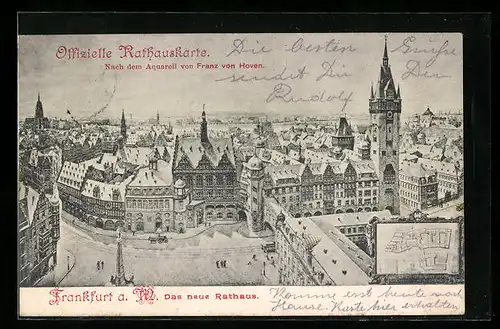 Offizielle Rathauskarte.
Nach dem Aquarell von Franz von Hoven.
Die besten Grüße
sendet Dir Dein
Rudolf
Frankfurt a. M. Das neue Rathaus.
Komme erst heute nach
Hause. Karte hier erhalten